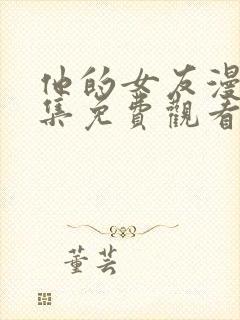 他的女友漫
集免費觀看
董芸